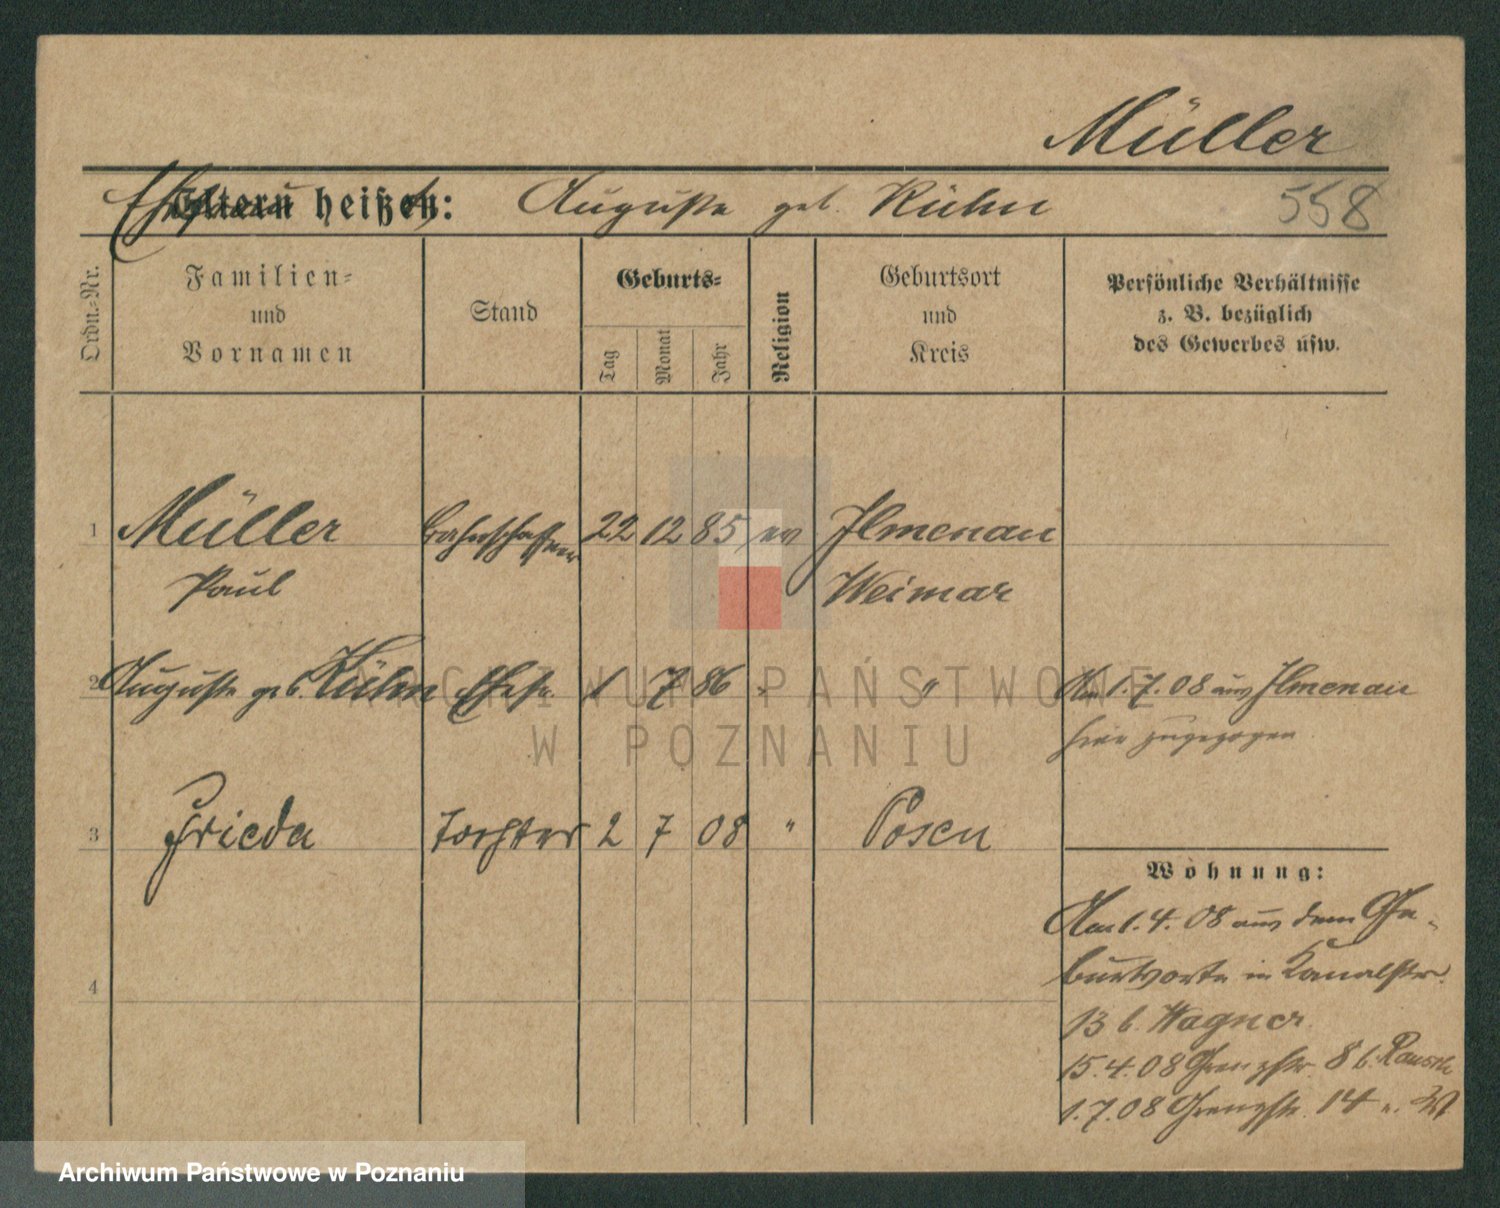 Müller
Ehefrau heißt: Auguste geb. Kühn
558
Ordn.-Nr.
Familien-
und
Vornamen
Stand
Geburts-
Tag
Monat
Jahr
Religion
Geburtsort
und
Kreis
Persönliche Verhältnisse
z. B. bezüglich
des Gewerbes usw.
1 Müller 22 12 85 ev Ilmenau
Paul Weimar
2 Auguste geb. Kühn Ehefr. 1 7 86 " " Am 1.7.08 aus Ilmenau
hier zugezogen
3 Frieda Tochter 2 7 08 " Posen
Wohnung:
Am 1.4.08 aus dem Ge-
burtsorte in Kanalstr.
13 b. Wagner
15.4.08 Grenzstr. 8 b. Rausch
1.7.08 Grenzstr. 14 e. W
4
ARCHIWUM PAŃSTWOWE
W POZNANIU
Archiwum Państwowe w Poznaniu